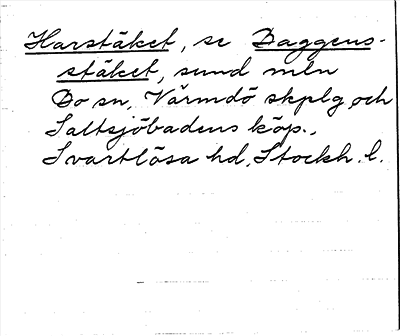 Harstäket, se Baggens-
stäket, sund mln
Bo sn, Värmdö skplg och
Saltsjöbadens köp.,
Svartlösa hd, Stockh. l.